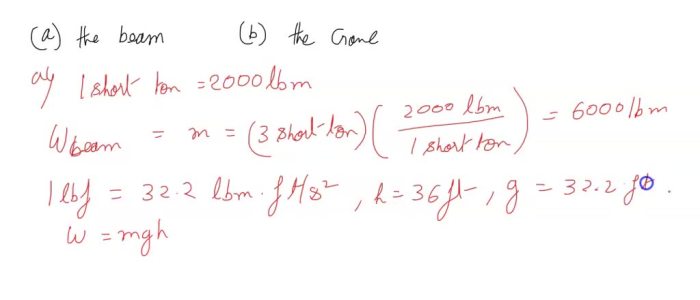 (a) the beam (b) the Crane
a) 1 short ton = 2000 lbm
Wbeam = m = (3 short-ton) (2000 lbm / 1 short ton) = 6000 lbm
1 lbf = 32.2 lbm·ft/s², h = 36 ft, g = 32.2 ft.
W = mgh